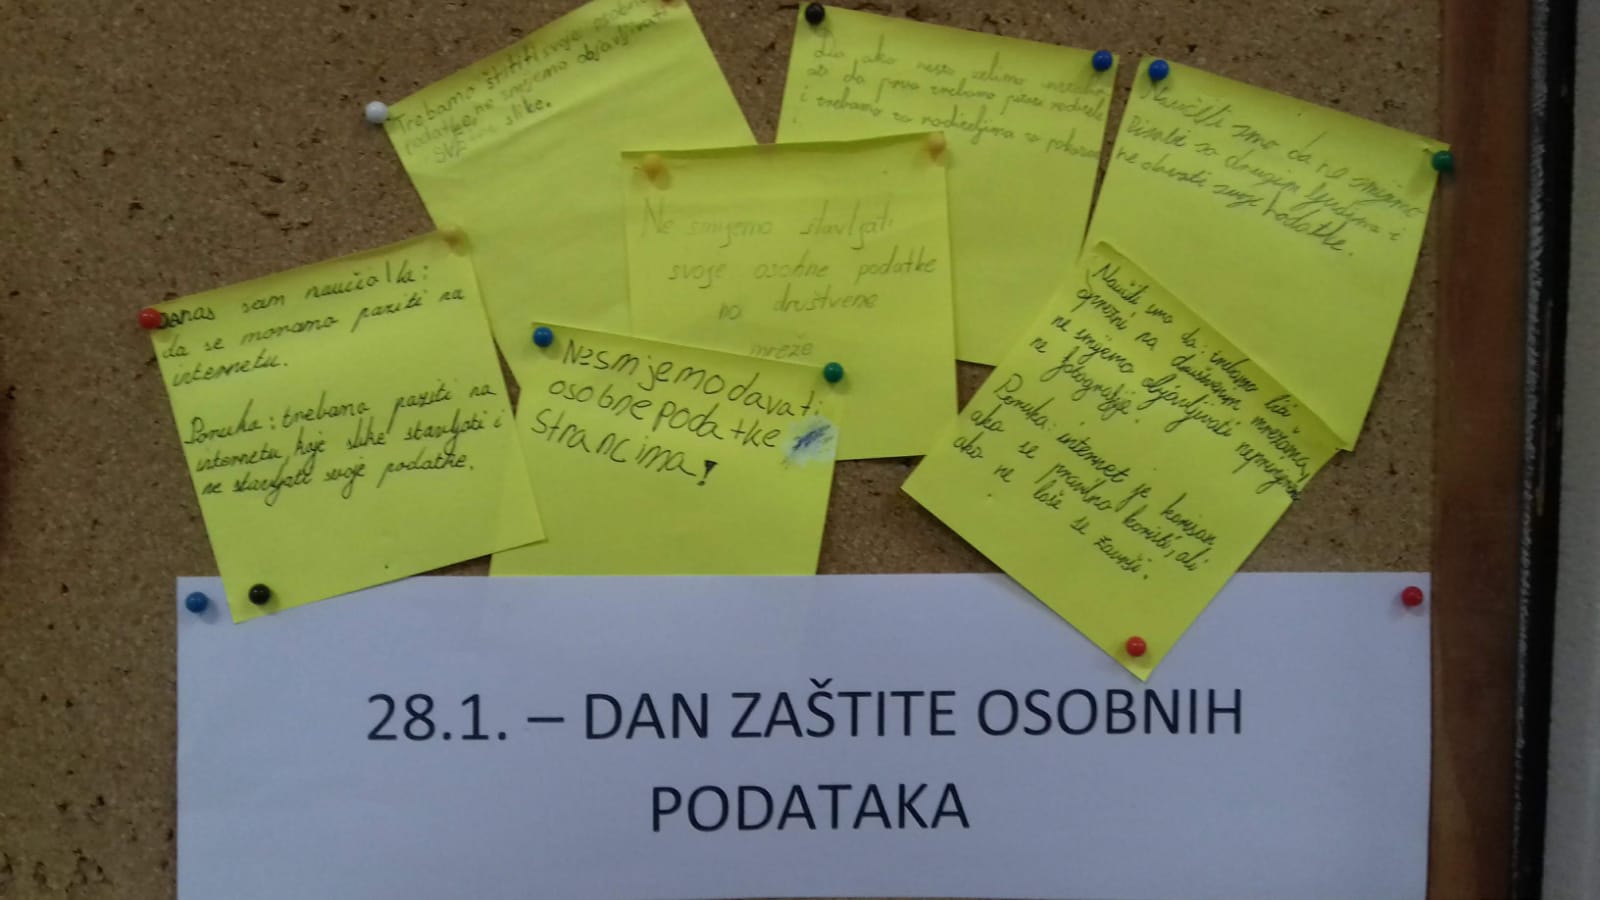 Trebamo štititi svoje osobne
podatke, ne smijemo objavljivati
SVE slike.
Da ako nešto želimo
da prvo trebamo pitati roditelje
i trebamo
Naučili smo da ne smijemo
sa drugim ljudima i
ne davati svoje podatke.
Ne smijemo stavljati
svoje osobne podatke
na društvene
mreže
Danas sam naučio/la:
da se moramo paziti na
internetu.
Poruka: trebamo paziti na
internetu, koje slike stavljati i
ne stavljati svoje podatke.
Nesmijemo davati
osobne podatke
strancima!
Naučili smo da: trebamo biti
oprezni na društvenim mrežama,
ne smijemo objavljivati
ne fotografije.
Poruka: internet je korisan
ako se pravilno koristi, ali
ako ne loše se završi.
28.1. – DAN ZAŠTITE OSOBNIH
PODATAKA